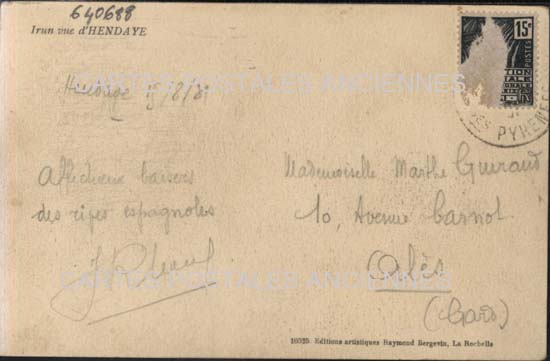 640688
Irun vue d'HENDAYE
15c
POSTES
CARTES POSTALES ANCIENNES
PYRENEES
Affectueux baisers
des rives espagnoles
Mademoiselle Marthe Guiraud
10, Avenue Carnot
Alès
(Gard)
CARTES POSTALES ANCIENNES
10325. Editions artistiques Raymond Bergevin, La Rochelle